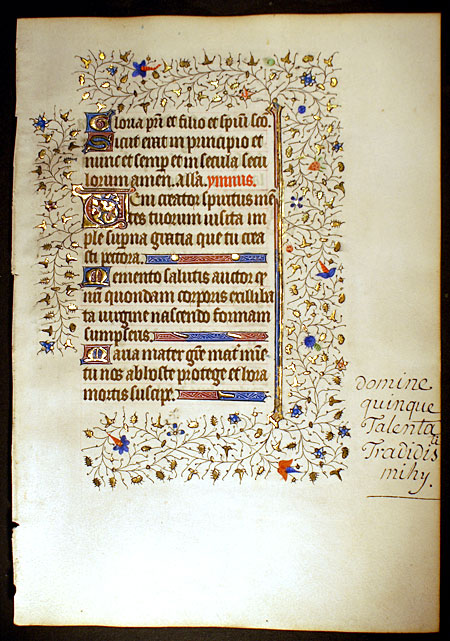 Gloria pr̄i et filio et spūi sc̄o
Sicut erat in principio et
nunc et semp et in secula secu
lorum amen. all̄a. ymnus.
Veni creator spiritus mē
tes tuorum uisita im
ple supna gratia que tu crea
sti pectora.
Memento salutis auctor q
nr̄i quondam corporis ex illiba
ta uirgine nascendo formam
sumpseris.
Maria mater gr̄e mat mīe
tu nos ab hoste protege et hora
mortis suscipe.
Domine
quinque
Talenta
Tradidisti
mihy.